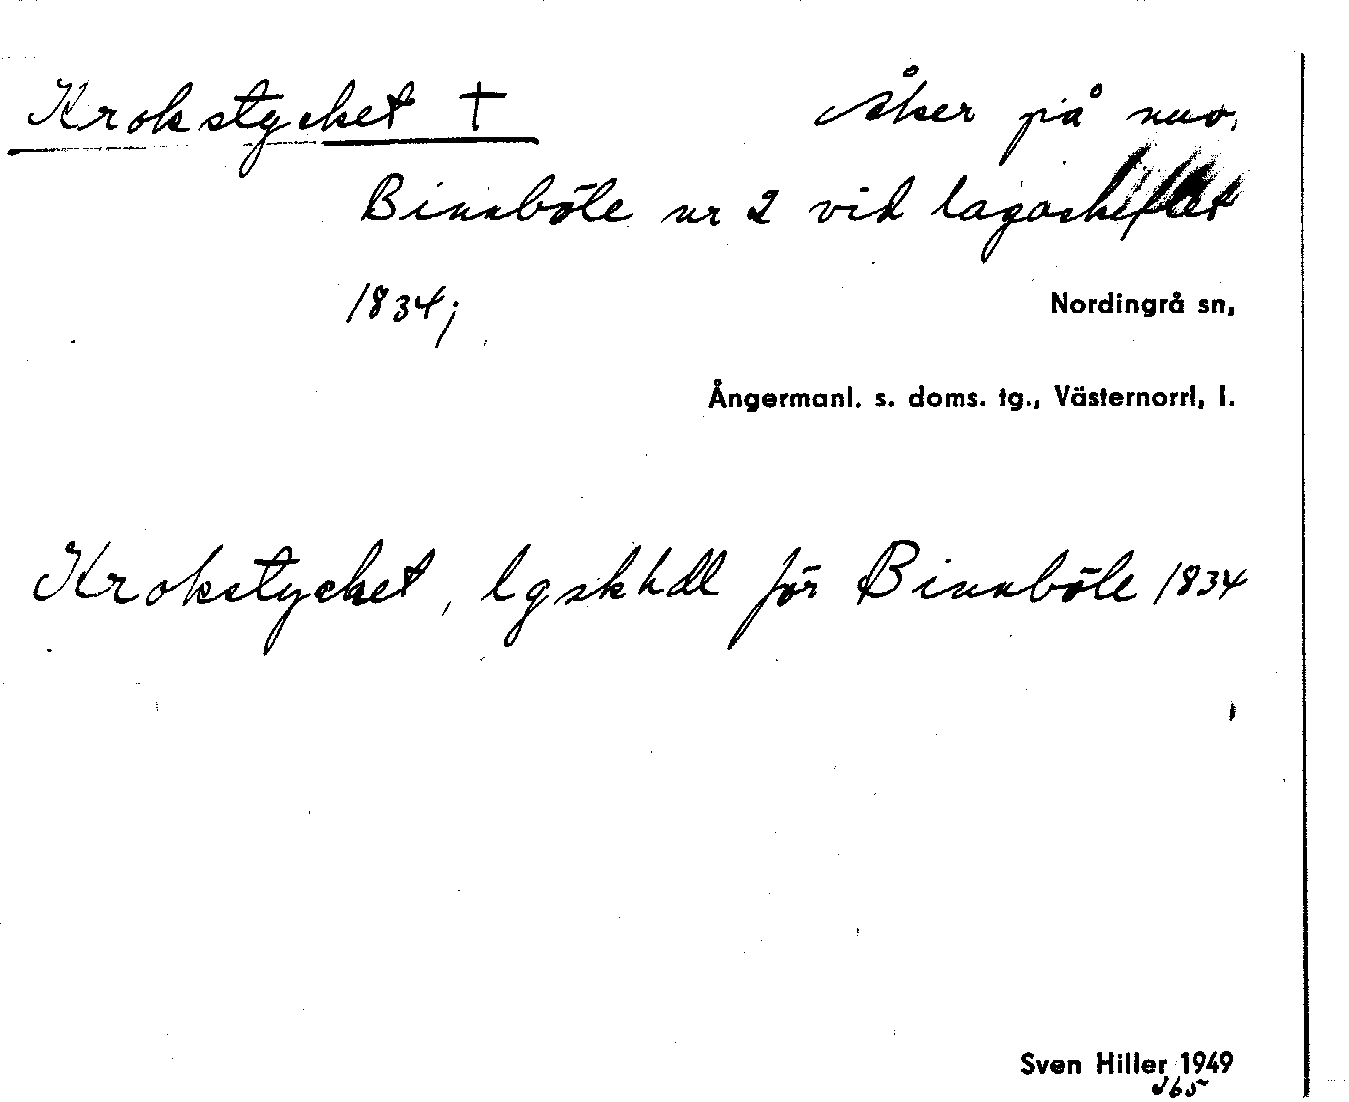 Krokstycket † Åker på nuv.
Binnböle nr 2 vid lagaskiftet
1834;
Nordingrå sn,
Ångermanl. s. doms. tg., Västernorrl, l.
Krokstycket, lgskhdl för Binnböle 1834
Sven Hiller 1949